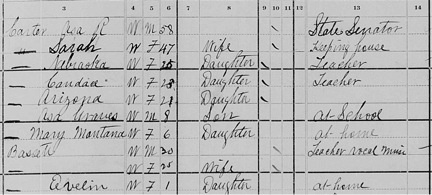 3 4 5 6 7 8 9 10 11 12 13 14
Carter Asa R W M 58 State Senator
— Sarah W F 47 Wife Keeping house
— Nebraska W F 25 Daughter Teacher
— Candac W F 23 Daughter Teacher
— Arizona W F 21 Daughter
— Asa Graves W M 8 Son at School
— Mary Montana W F 6 Daughter at home
W M 30 Teacher vocal music
— W F 25 Wife
— Evelin W F 1 Daughter at home